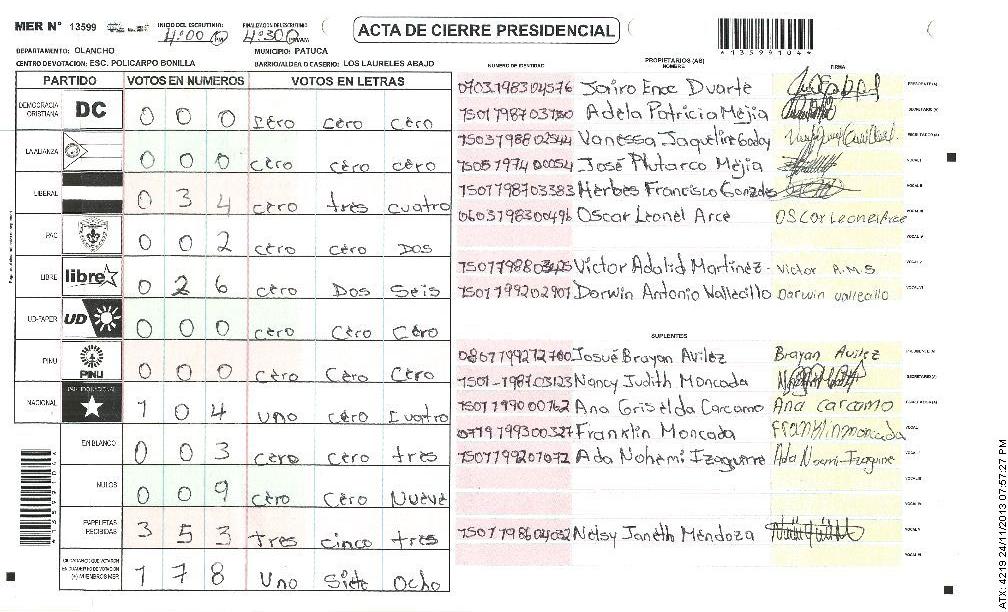 MER N° 13599 INICIO DEL ESCRUTINIO 4:00 PM FINALIZACION DEL ESCRUTINIO 4:30 PM/AM
ACTA DE CIERRE PRESIDENCIAL
*13599104*
DEPARTAMENTO: OLANCHO MUNICIPIO: PATUCA
CENTRO DE VOTACION: ESC. POLICARPO BONILLA BARRIO/ALDEA O CASERIO: LOS LAURELES ABAJO
PARTIDO VOTOS EN NUMEROS VOTOS EN LETRAS
DEMOCRACIA CRISTIANA DC 0 0 0 cero cero cero
LA ALIANZA 0 0 0 cero cero cero
LIBERAL 0 3 4 cero tres cuatro
PAC 0 0 2 cero cero Dos
LIBRE libre 0 2 6 cero Dos Seis
UD-FAPER UD 0 0 0 cero cero cero
PINU PINU 0 0 0 cero cero cero
NACIONAL PARTIDO NACIONAL 1 0 4 uno cero cuatro
EN BLANCO 0 0 3 cero cero tres
NULOS 0 0 9 cero cero Nueve
PAPELETAS RECIBIDAS 3 5 3 tres cinco tres
CIUDADANOS QUE VOTARON EN CUADERNO DE VOTACION (+) MIEMBROS MER 1 7 8 Uno Siete Ocho
*13599104*
NUMERO DE IDENTIDAD PROPIETARIOS (AS) NOMBRE FIRMA
0703198304576 Jairo Enoc Duarte PRESIDENTE(A)
1501198703780 Adela Patricia Mejia SECRETARIO(A)
1503198802544 Vanessa Jaqueline Godoy ESCRUTADOR(A)
1505197400054 José Plutarco Mejia VOCAL I
1501198703383 Herbes Francisco Gonzales VOCAL II
0603198300496 Oscar Leonel Arce OSCar Leonel Arce VOCAL III
VOCAL IV
Victor Adalid Martinez Victor A.M.S VOCAL V
1501199202901 Darwin Antonio Vallecillo Darwin vallecillo VOCAL VI
SUPLENTES
0801199212760 Josué Brayan Avilez Brayan Avilez PRESIDENTE(A)
1501-198703123 Nancy Judith Moncada SECRETARIO(A)
1501199000762 Ana Griselda Carcamo Ana carcamo ESCRUTADOR(A)
0719199300327 Franklin Moncada Franklin moncada VOCAL I
1501199201072 Ada Nohemi Izaguirre Ada Noemi Izaguirre VOCAL II
VOCAL III
VOCAL IV
1501198604032 Nelsy Janeth Mendoza VOCAL V
VOCAL VI
ATX: 4219 24/11/2013 07:57:27 PM